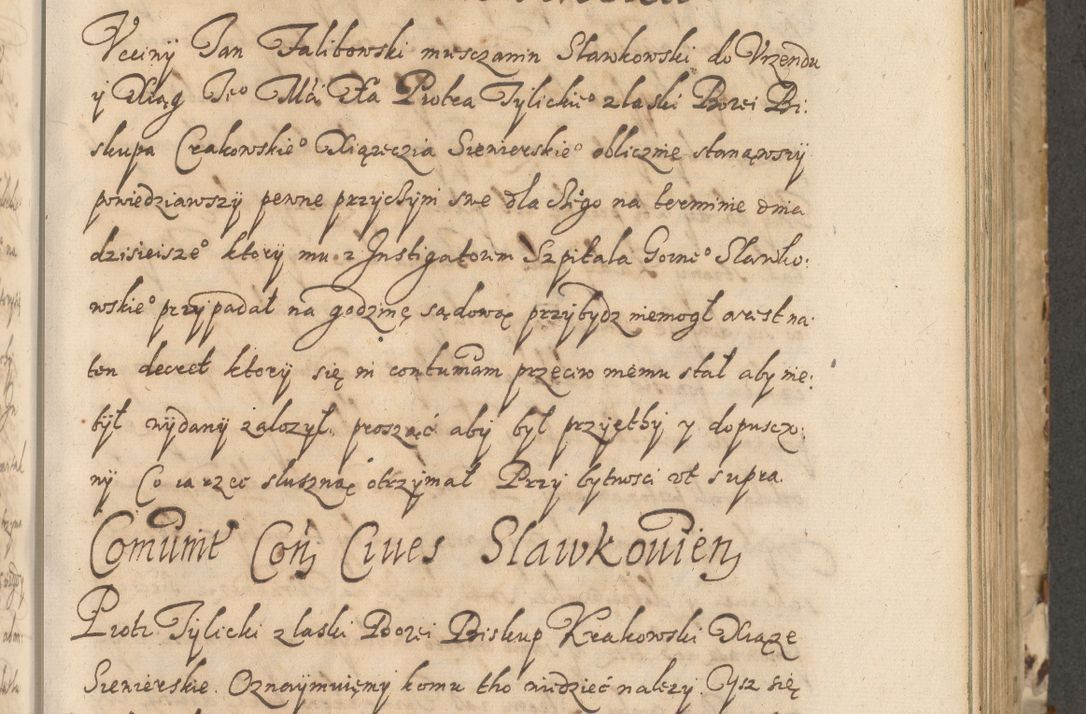 Vcciwij Jan Falibowski miesczanin Sławkowski do Vrzendu
ÿ Xiąg Jeo Mći Xa Piotra Tylickieo z laski Bozei Bi:
skupa Crakowskieo Xiązęczia Siewierskieo oblicznie stanąwszÿ
powiedziawszÿ pewne przÿczÿni swe dla cżego na terminie dnia
dzisieiszeo ktorÿ mu z Jnstigatorem Szpitala Gorneo Sławko:
wskieo przÿpadał na godzinę sądową przÿbydz niemogł arest na
ten decret ktorÿ się in contumatiam przeciw niemu stał abÿ nie:
bÿł wÿdanÿ założÿł. prosząc abÿ bÿł przÿętÿ y dopusczo:
nÿ Co ia rzec słuszną otrzÿmał Przÿ bytnosci vt supra.
Comunit Coñ Ciues Slawkouien
Piotr Tÿlicki z laski Bozei Biskup Krakowski Xiąze
Siewierskie. Oznaÿmuięmy komu tho wiedzieć nalezy. Jsz się